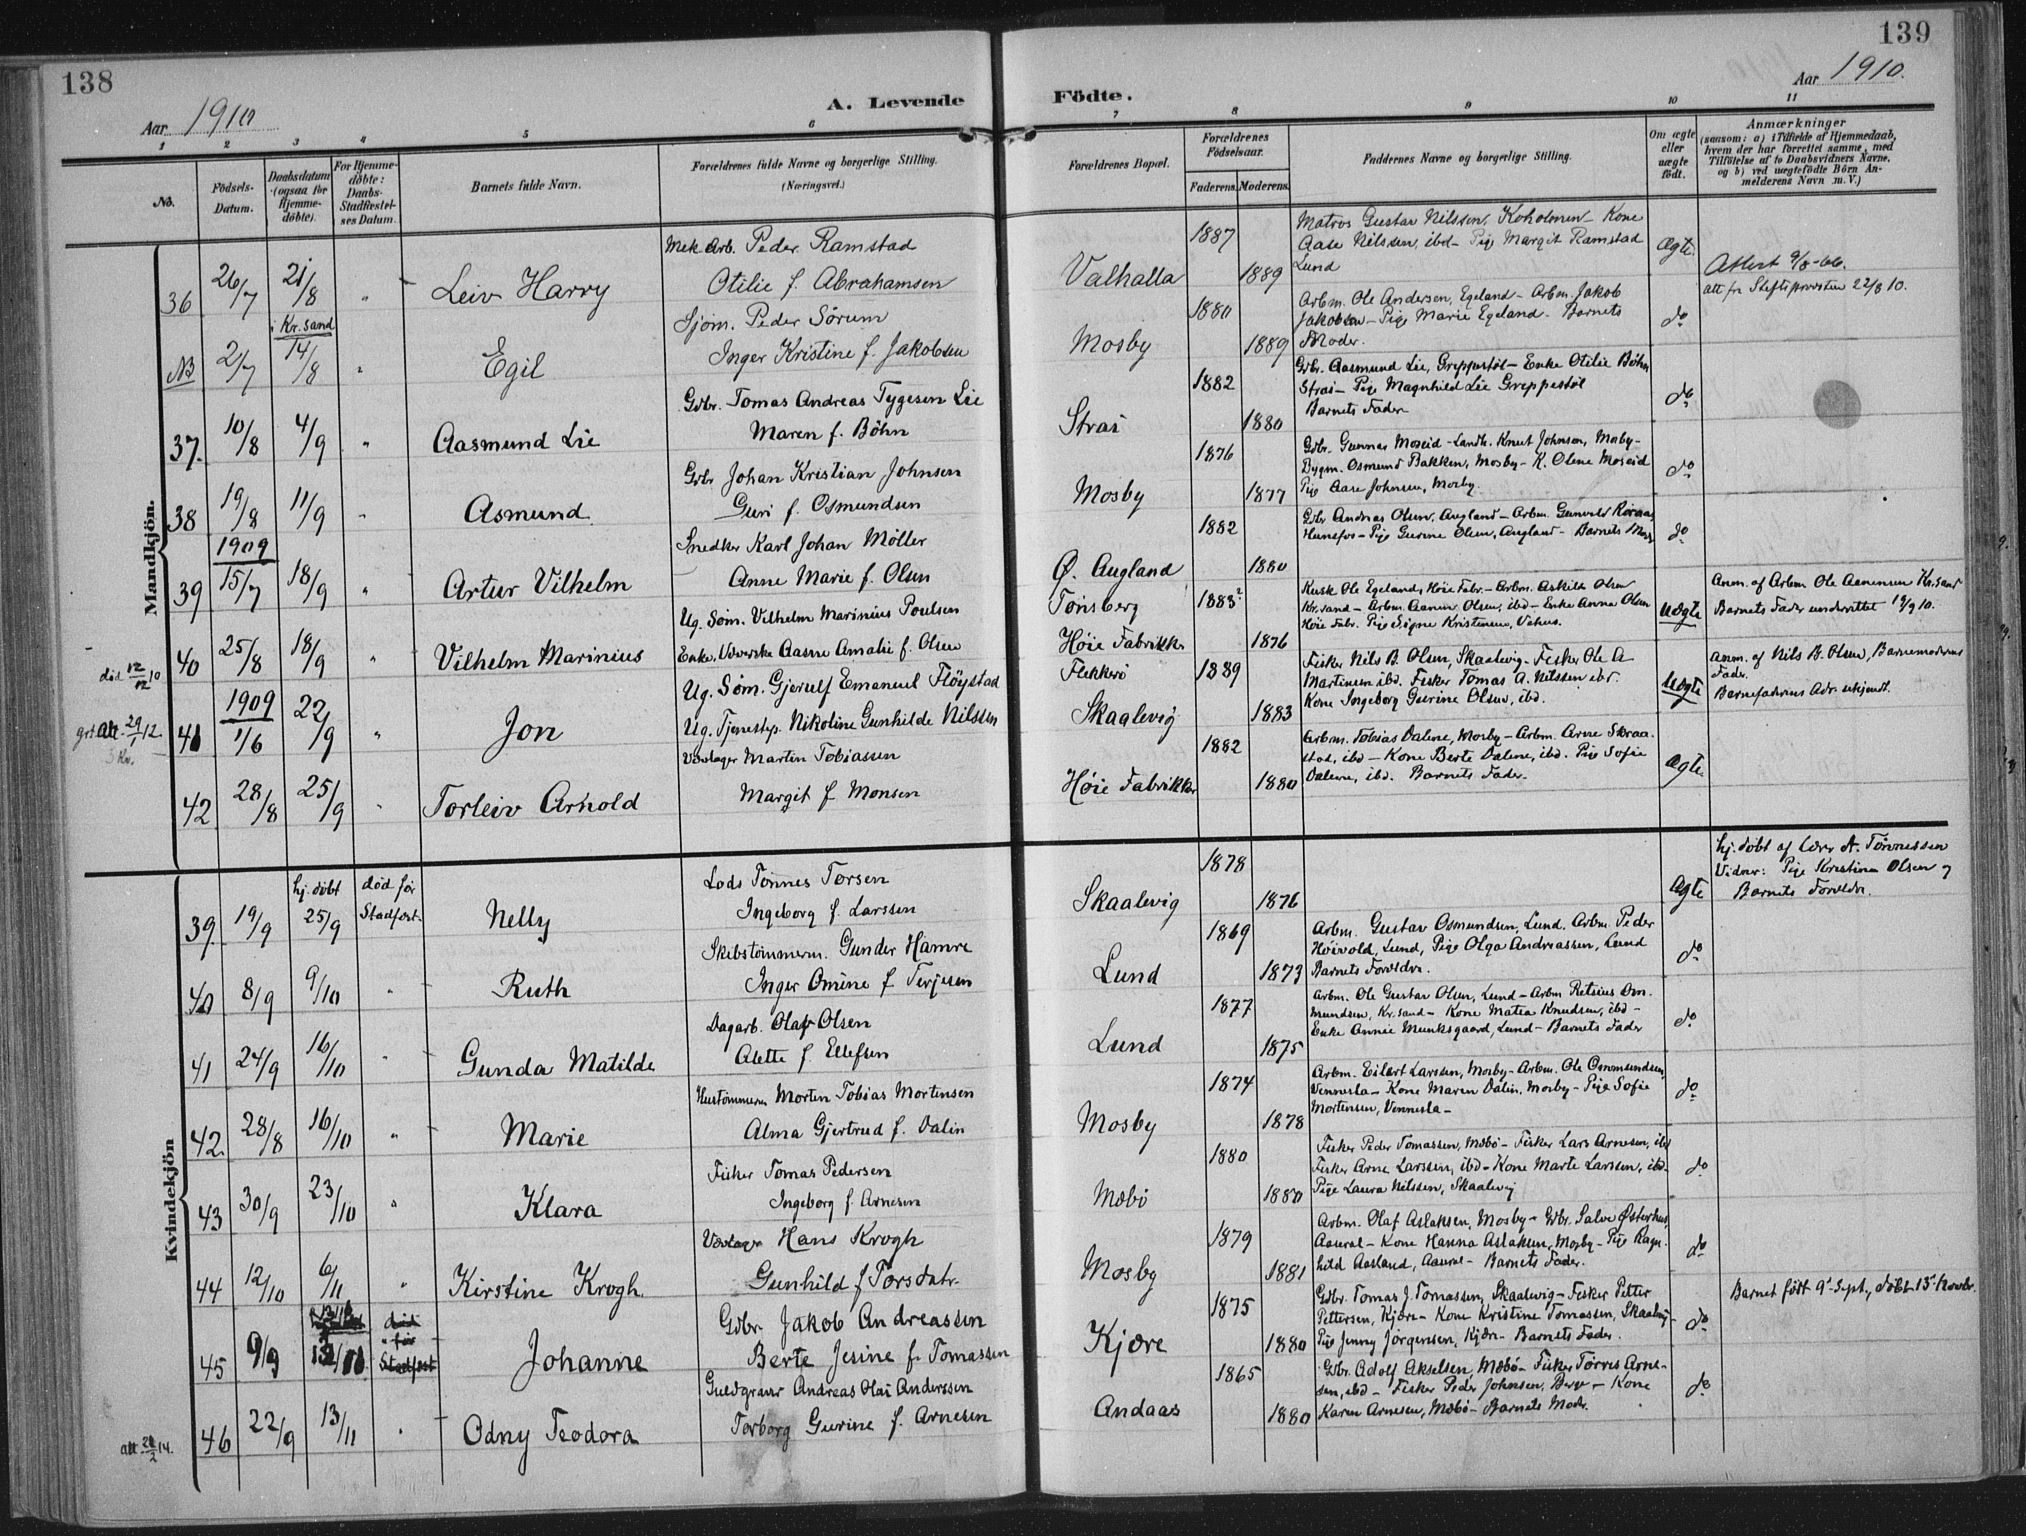 138
139
Aar 1910
A. Levende
Födte.
Aar 1910.
1 2 3 4 5 6 7 8 9 10 11
No.
Födsels-Datum.
Daabsdatum (ogsaa for Hjemme-döbte).
For Hjemme-döbte: Daabs-Stadfæstel-ses Datum.
Barnets fulde Navn.
Forældrenes fulde Navne og borgerlige Stilling.
(Næringsvei.)
Forældrenes Bopæl.
Forældrenes Födselsaar.
Faderens. Moderens.
Faddernes Navne og borgerlige Stilling.
Om ægte eller uægte födt.
Anmærkninger
(saasom: a) i Tilfælde af Hjemmedaab, hvem der har forrettet samme, med Tilföielse af to Daabsvidners Navne, og b) ved uægtefödte Börn An-melderens Navn m. V.)
Mandkjön.
36 26/7 21/8 " Leiv Harry
Mek. Arb. Peder Ramstad
Otilie f. Abrahamsen
Valhalla 1887 1889
Matros Gustav Nilssen, Koholmen - Kone
Aase Nilssen, ibd - Pige Margit Ramstad
Lund
Ægte
Attest 9/8-66.
att fra Stiftsprovstien 22/8 10.
NB 2/7 i Kr.sand 14/8 " Egil
Sjøm. Peder Sörum
Inger Kristine f. Jakobsen
Mosby 1880 1889
Arbm. Ole Andersen, Egeland - Arbm. Jakob
Jakobsen - Pige Marie Egeland - Barnets
Moder.
do
37. 10/8 4/9 " Aasmund Lie
Gdbr. Tomas Andreas Tygesen Lie
Maren f. Böhn
Strai 1882 1880
Gdbr. Aasmund Lie, Greppestöl - Enke Otilie Böhn
Strai - Pige Magnhild Lie Greppestöl
Barnets Fader
do
38 19/8 11/9 " Asmund
Gdbr Johan Kristian Johnsen
Guri f. Osmundsen
Mosby 1876 1877
Gdbr. Gunnar Moseid - Landh. Knut Johnsen, Mosby -
Bygm. Osmund Bakken, Mosby - K. Olene Moseid
Pige Aase Johnsen, Mosby.
do
39 1909 15/7 18/9 " Artur Vilhelm
Snedker Karl Johan Möller
Anne Marie f. Olsen
Ø. Augland 1882 1880
Gdbr Andreas Olsen, Augland - Arbm. Gunvald
Hunsfos - Pige Gurine Olsen, Augland - Barnets
do
40 25/8 18/9 " Vilhelm Marinius
Ug. Søm. Vilhelm Marinius Poulsen
Enke, Væverske Aasne Amalie f. Olsen
Tönsberg
Høie Fabrikker 1883? 1876
Kusk Ole Egeland, Høie Fabr. - Arbm. Askild Olsen
Kr.sand - Arbm. Aanen Olsen, ibd - Enke Anna Olsen
Høie Fabr. Pige Signe Kristensen, Vehus.
Uægte
Anm. af Arbm Ole Aanensen Kr.sand
Barnets Fader underrettet 19/9 10.
död 12/12 10
41 1909 1/6 22/9 " Jon
Ug. Søm. Gjerulf Emanuel Flöystad
Ug. Tjenestep. Nikoline Gunhilde Nilssen
Flekkerö
Skaalevig 1889 1883
Fisker Nils B. Olsen, Skaalevig - Fisker Ole A
Martinsen ibd. Fisker Tomas A. Nilssen ibd.
Kone Ingeborg Gurine Olsen, ibd.
Uægte
Anm. af Nils B. Olsen, Barnemoderens
Fader.
Barnefaderens Adr. ukjendt.
42 28/8 25/9 " Torleiv Arnold
Vævlager Martin Tobiassen
Margit f. Monsen
Høie Fabrikker 1882 1880
Arbm. Tobias Dalene, Mosby - Arbm. Arne Skraa-
stad, ibd - Kone Berte Dalene, ibd. Pige Sofie
Dalene, ibd. Barnets Fader.
Ægte
Kvindekjön
39. 19/9 hj. döbt 25/9 död før Stadfæst. Nelly
Lods Tönnes Torsen
Ingeborg f. Larssen
Skaalevig 1878 1876
Ægte
hj. döbt af Lærer A. Tönnessen
Vidner: Pige Kristina Olsen og
Barnets Forældre.
40 8/9 9/10 " Ruth
Skibstömmerm. Gunder Hamre
Inger Omine f Terjesen
Lund 1869 1873
Arbm. Gustav Osmundsen, Lund. Arbm. Peder
Höivold, Lund, Pige Olga Andreassen, Lund
Barnets Forældre.
do
41 24/9 16/10 " Gunda Matilde
Dagarb. Olaf Olsen
Alette f Ellefsen
Lund 1877 1875
Arbm. Ole Gustav Olsen, Lund - Arbm Retsius Om-
mundsen, Kr.sand - Kone Matea Knudsen, ibd -
Enke Annie Munksgaard, Lund - Barnets Fader
do
42. 28/8 16/10 " Marie
Hustömmerm Morten Tobias Mortensen
Alma Gjertrud f. Dalin
Mosby 1874 1878
Arbm. Eilert Larssen, Mosby - Arbm. Ole Ommundsen,
Vennesla - Kone Maren Dalin, Mosby - Pige Sofie
Mortensen, Vennesla -
do
43 30/9 23/10 " Klara
Fisker Tomas Pedersen
Ingeborg f. Arnesen
Mæbö 1880 1880
Fisker Peder Tomassen, Mæbö - Fisker Lars Arnesen, ibd
Fisker Arne Larssen, ibd - Kone Marte Larssen, ibd.
Pige Laura Nilssen, Skaalevig
do
44 12/10 6/11 " Kirstine Krogh.
Vævlager Hans Krogh
Gunhild f Torsdatr.
Mosby 1879 1881
Arbm. Olaf Aslaksen, Mosby - Gdbr. Salve Østerhus,
Aaseral - Kone Hanna Aslaksen, Mosby - Pige Ragn-
hild Aasland, Aaseral - Barnets Fader.
do
45 9/9 död før Stadfæst Johanne
Gdbr. Jakob Andreassen
Berte Jesine f. Tomassen
Kjære 1875 1880
Gdbr. Tomas J. Tomassen, Skaalevig - Fisker Petter
Pettersen, Kjære - Kone Kristine Tomassen, Skaalevig -
Pige Jenny Jörgensen, Kjære - Barnets Fader.
do
Barnet födt 9' Sept., döbt 13' Novbr.
46 22/9 13/11 " Odny Teodora
Guldgravr Andreas Olai Anderssen
Torborg Gurine f. Arnesen
Andaas 1865 1880
Gdbr. Adolf Akselsen, Mæbö - Fisker Törres Arne-
sen, ibd - Fisker Peder Johnsen, Berge - Kone
Karen Arnesen, Mæbö - Barnets Moder.
do
att 2/14.